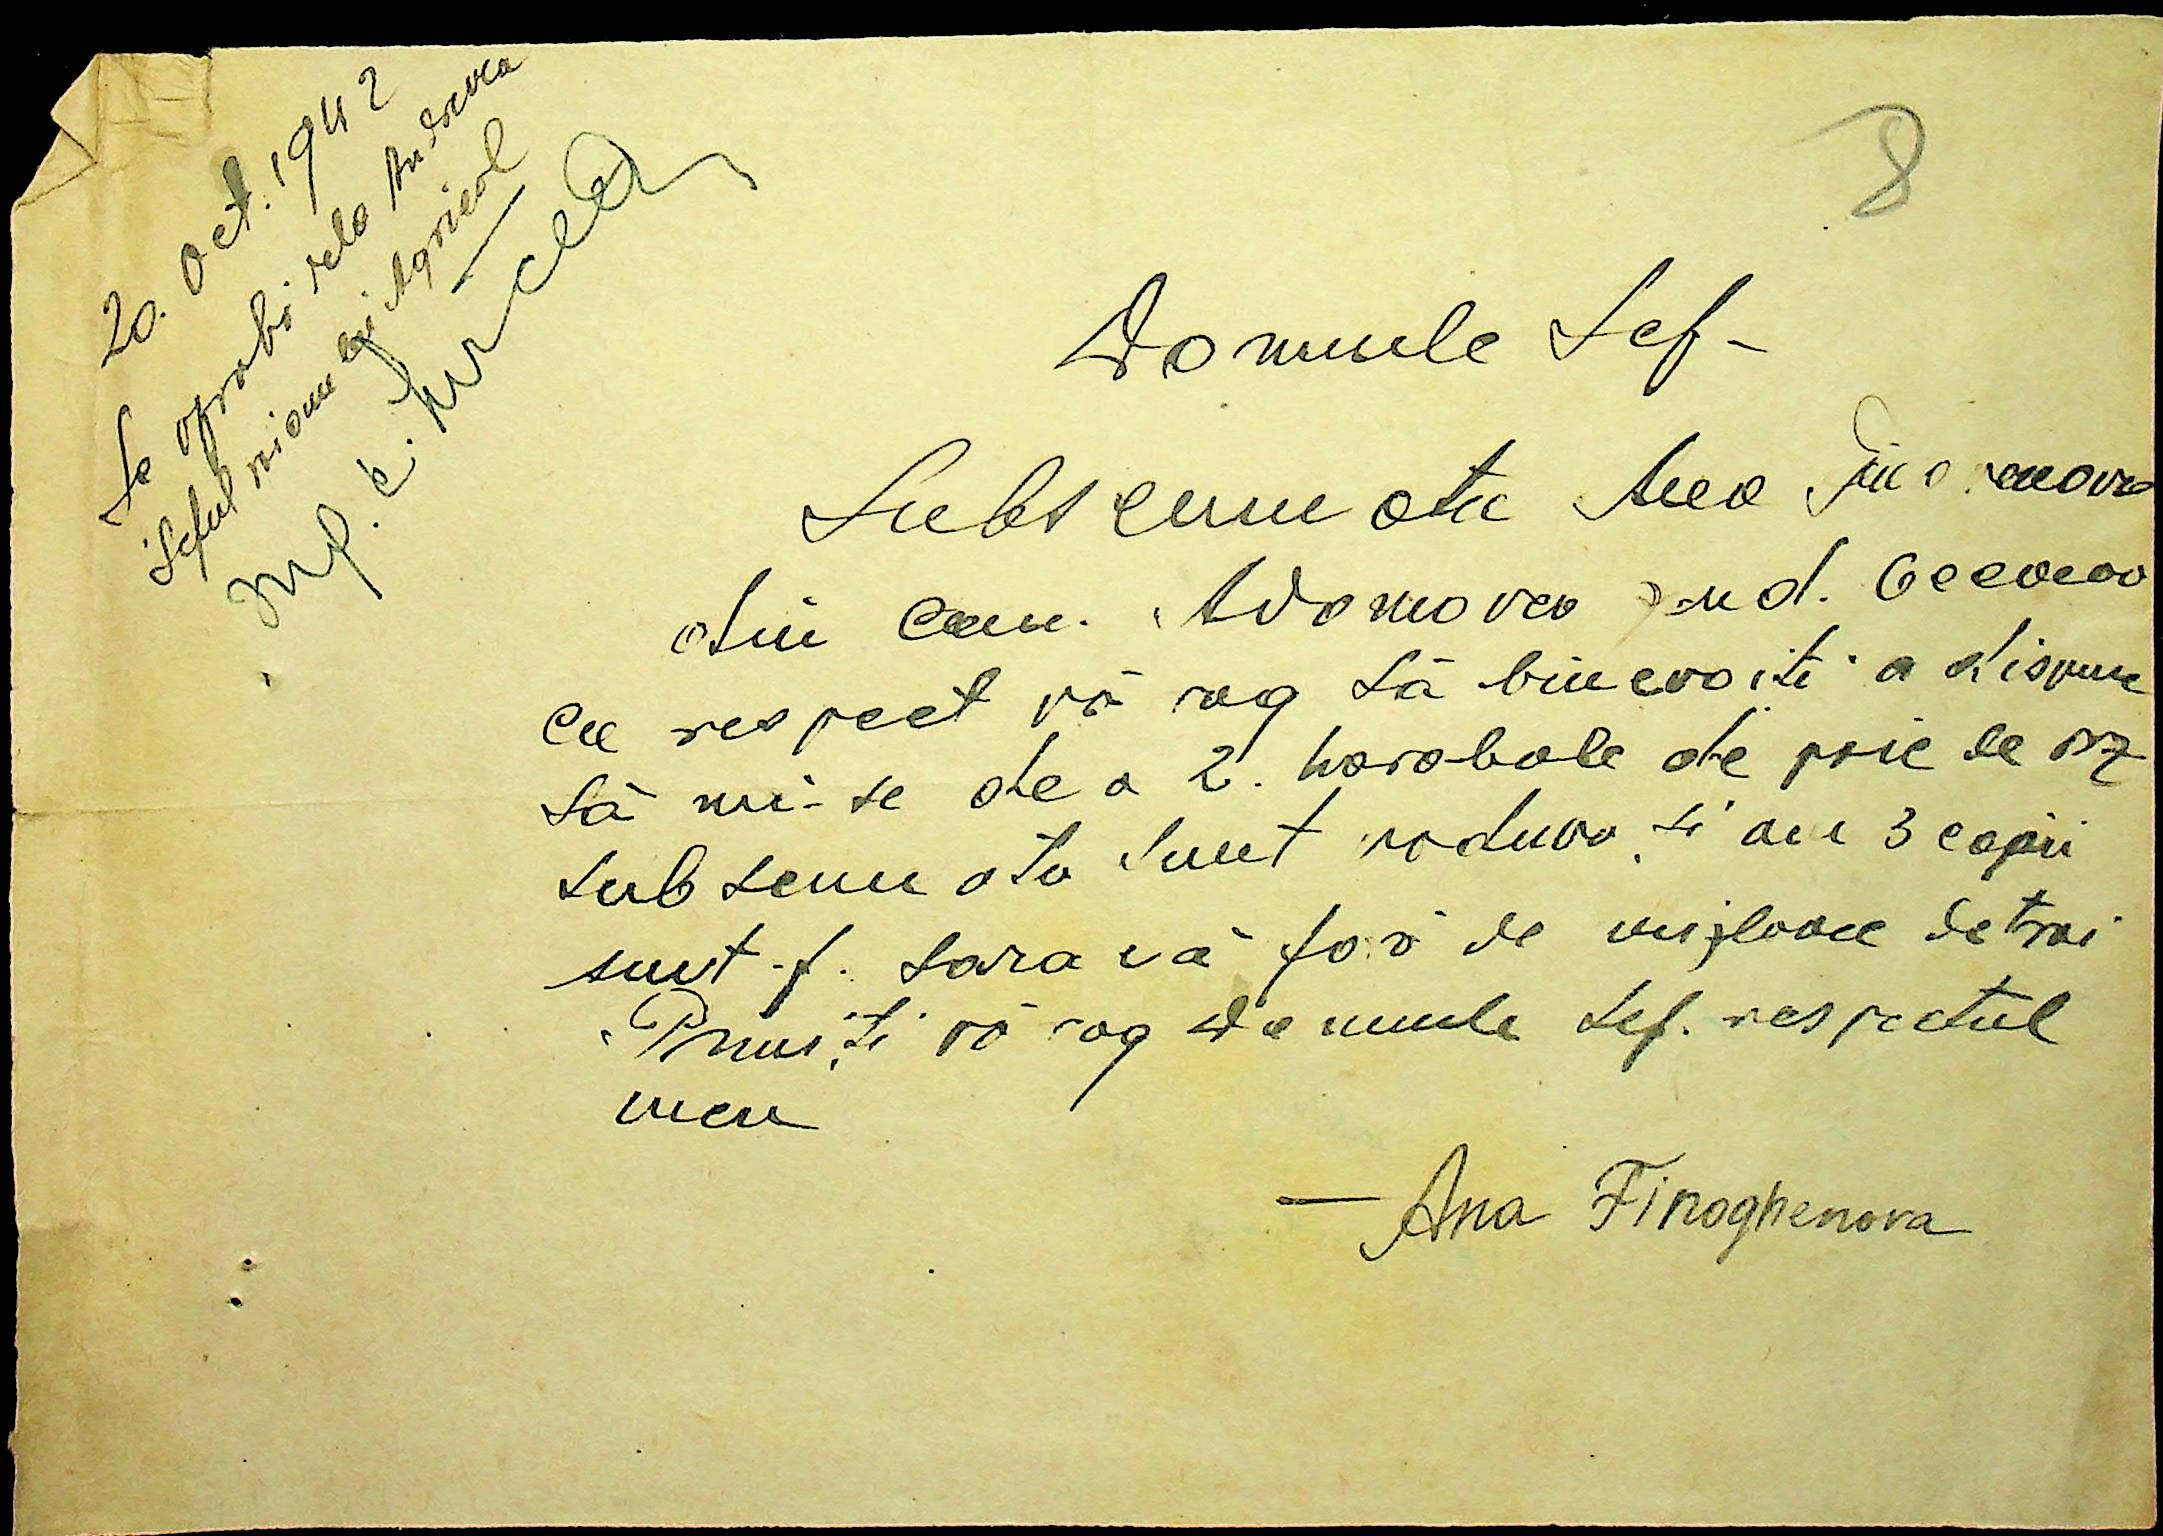 8
20. Oct. 1942
Se aprobă
Șeful Agricol
Domnule Șef-
Subsemnata Ana
din com. Adamovca Jud.
cu respect vă rog să binevoiți a dispune
să mi-se de a 2. harabale de paie de orz
subsemnata sunt văduva și am 3 copii
sunt f. saracă fară de mijloace de trai
Primiți vă rog Domnule Șef. respectul
meu
— Ana Finoghenova